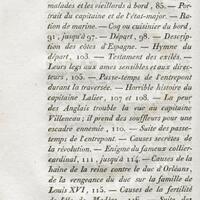 malades et les vieillards à bord, 85. — Por-
trait du capitaine et de l'état-major. — Ra-
tion de marine. — Coq ou cuisinier du bord,
91, jusqu'à 97. — Départ, 98. — Descrip-
tion des côtes d'Espagne. — Hymne du
départ, 103. — Testament des exilés. —
Leurs legs aux ames sensibles et aux direc-
teurs, 105. — Passe-temps de l'entrepont
durant la traversée. — Horrible histoire du
capitaine Lalier, 107 et 108. — La peur
des Anglais trouble la vue au capitaine
Villeneau; il prend des souffleurs pour une
escadre ennemie, 110. — Suite des passe-
temps de l'entrepont. — Causes secrètes de
la révolution. — Enigme du fameux collier-
cardinal, 111, jusqu'à 114. — Causes de la
haine de la reine contre le duc d'Orléans,
de la vengeance du duc sur la famille de
Louis XVI, 115. — Causes de la fertilité